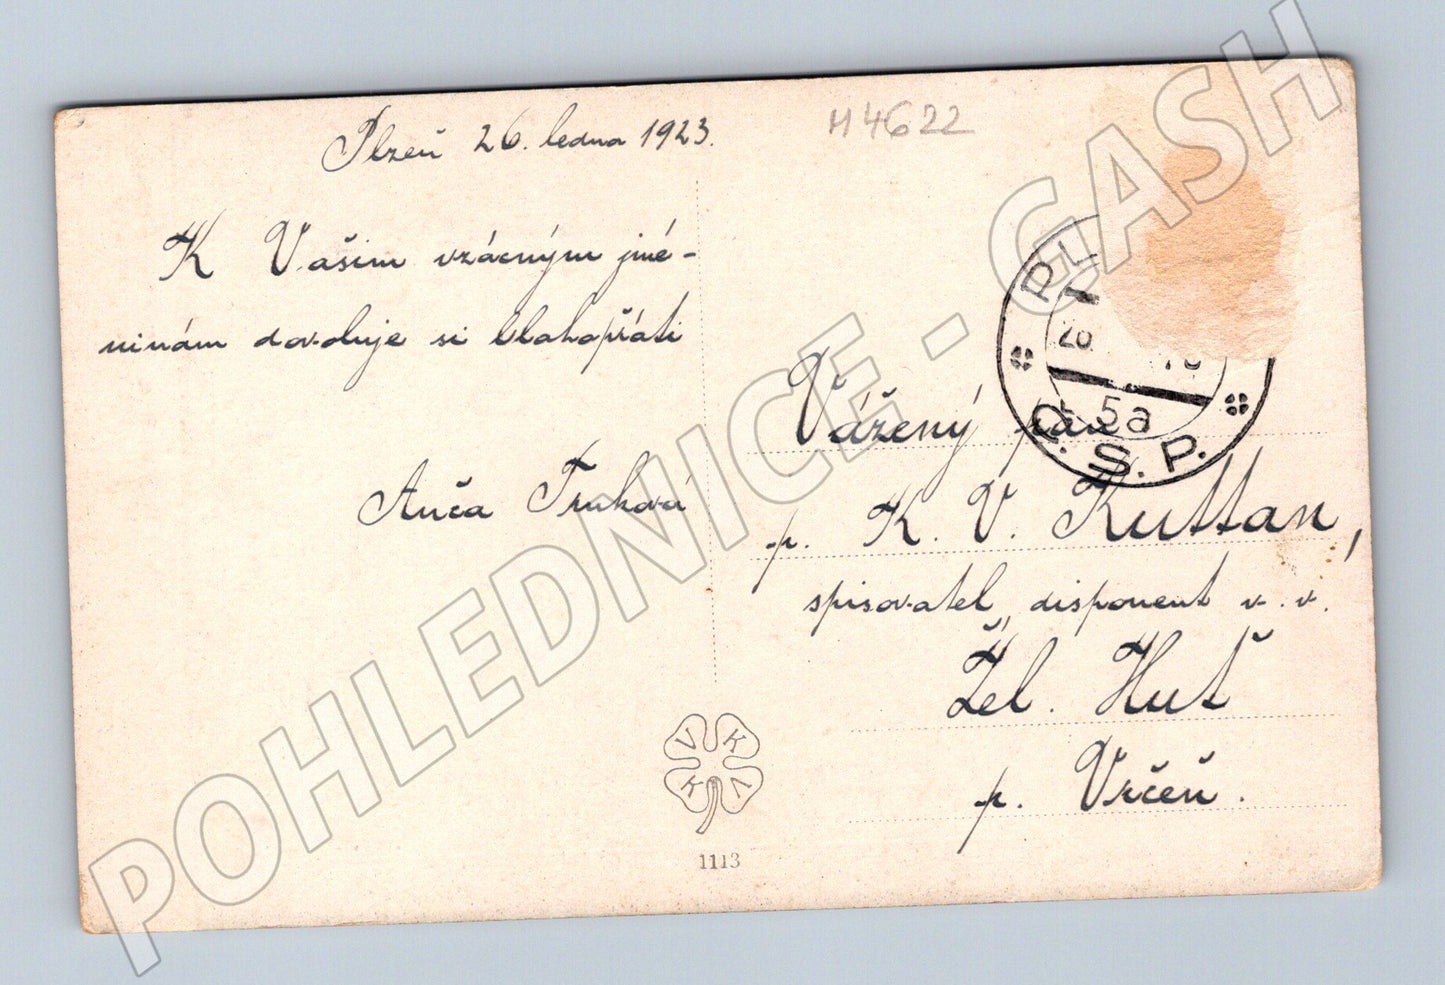 Plzeň 26. ledna 1923.
M4622
K Vašim vzácným jmé-
ninám dovoluje si blahopřáti
Anča Truhová
Vážený pan
p. K. V. Kuttan,
spisovatel, disponent v. v.
Žel. Huť
p. Vrčeň.
PL
26.
5a
Č.S.P.
V K
K V
1113
POHLEDNICE - GASH